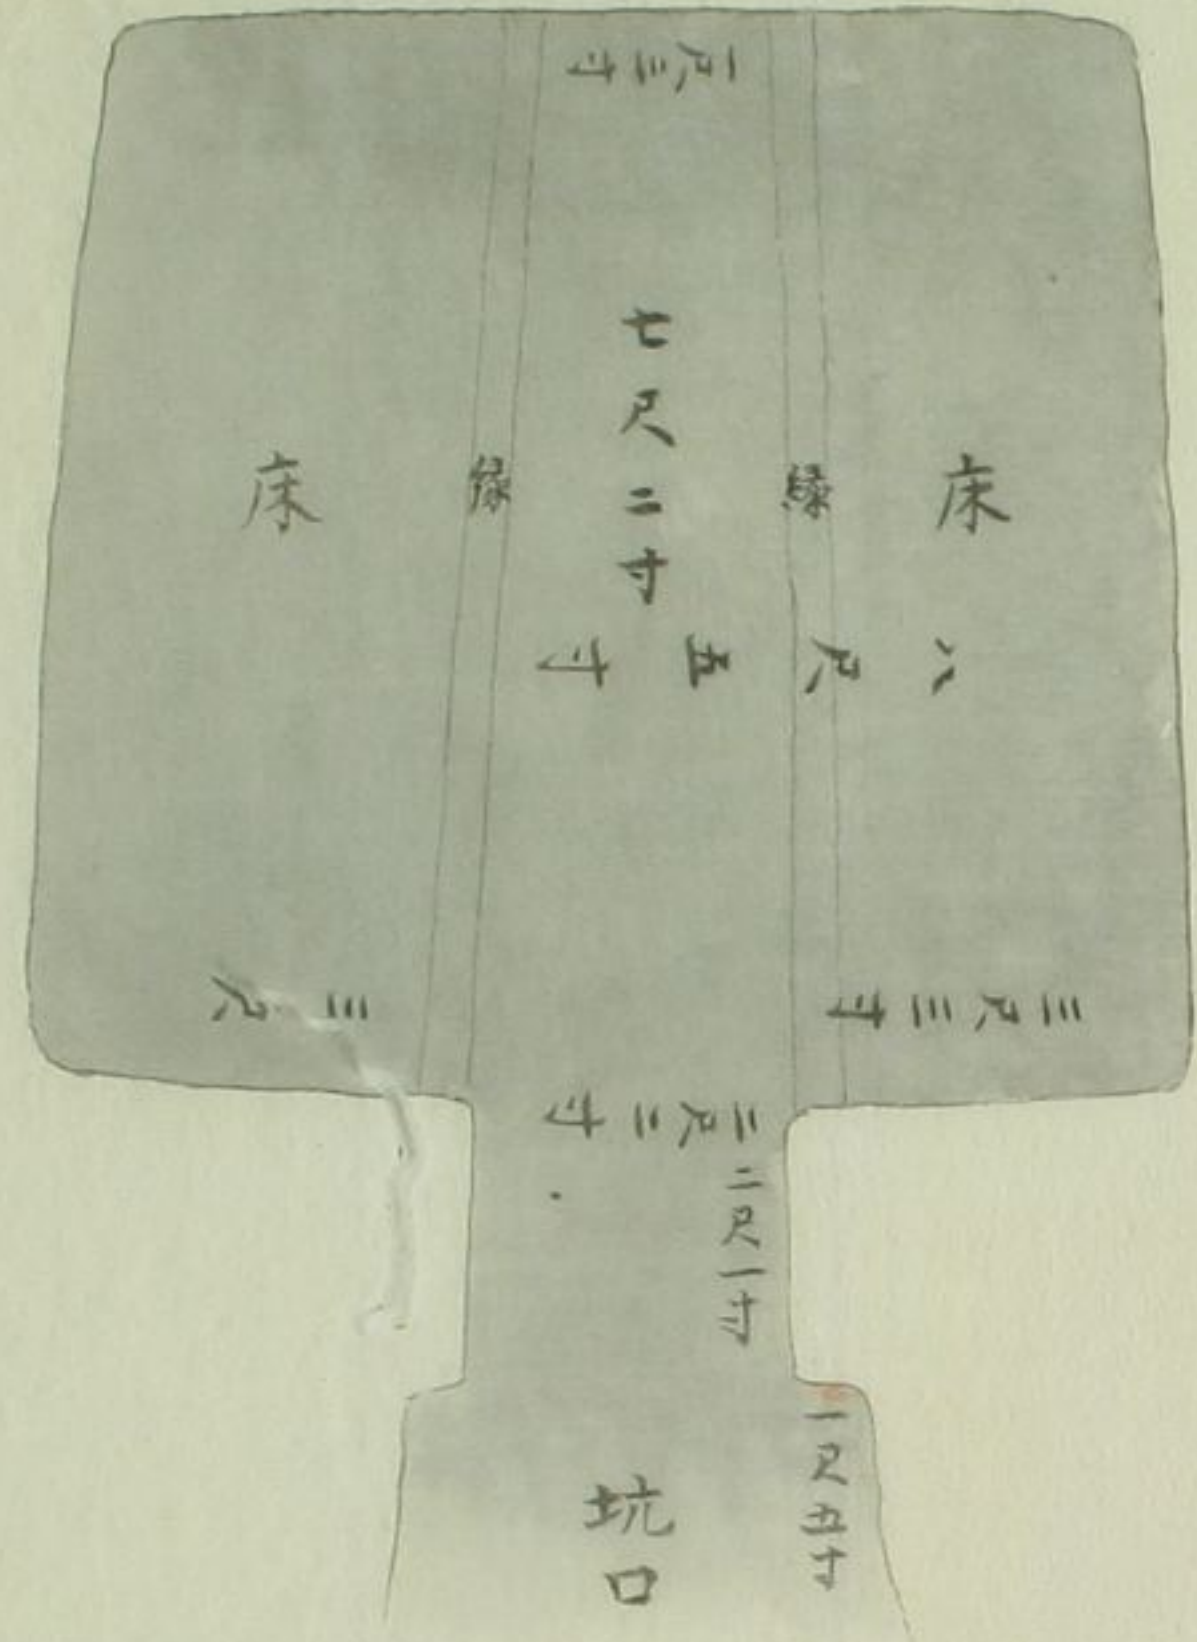 一尺三寸
七尺二寸
床
縁
縁
床
八尺五寸
三尺三寸
三尺
二尺二寸
二尺一寸
一尺五寸
坑口